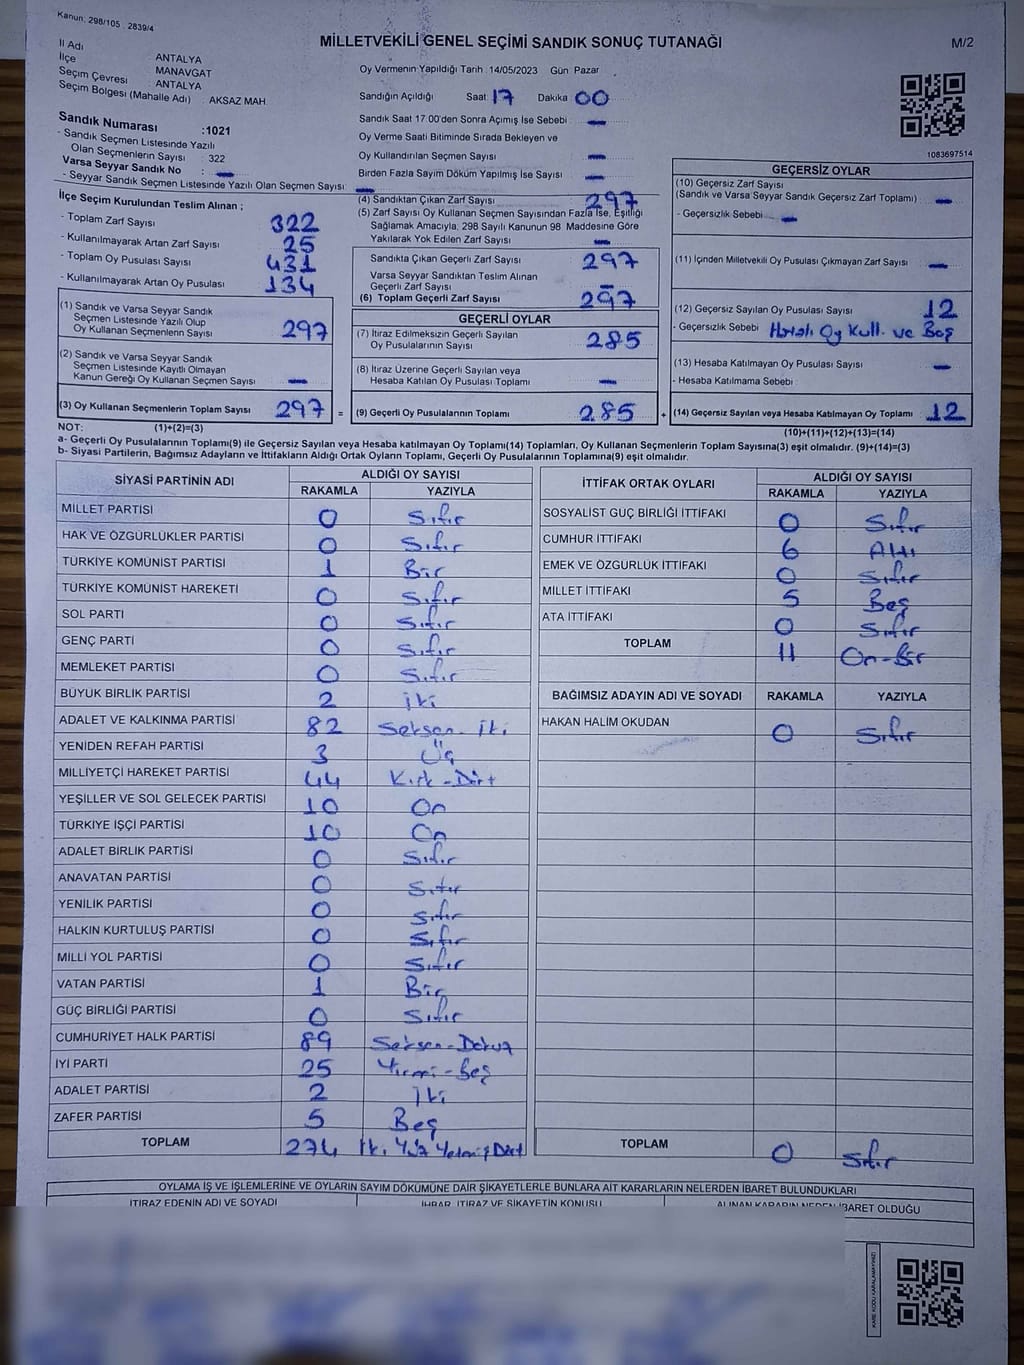 Kanun: 298/105 2839/4
MİLLETVEKİLİ GENEL SEÇİMİ SANDIK SONUÇ TUTANAĞI
M/2
İl Adı ANTALYA
İlçe MANAVGAT
Seçim Çevresi ANTALYA
Seçim Bölgesi (Mahalle Adı) : AKSAZ MAH.
Oy Vermenin Yapıldığı Tarih : 14/05/2023 Gün Pazar
Sandığın Açıldığı Saat: 17 Dakika 00
Sandık Saat 17.00'den Sonra Açımış İse Sebebi : —
Oy Verme Saati Bitiminde Sırada Bekleyen ve
Oy Kullandırılan Seçmen Sayısı —
Birden Fazla Sayım Döküm Yapılmış İse Sayısı : —
Sandık Numarası :1021
- Sandık Seçmen Listesinde Yazılı
Olan Seçmenlerin Sayısı : 322
Varsa Seyyar Sandık No : —
- Seyyar Sandık Seçmen Listesinde Yazılı Olan Seçmen Sayısı: —
1083697514
İlçe Seçim Kurulundan Teslim Alınan ;
- Toplam Zarf Sayısı 322
- Kullanılmayarak Artan Zarf Sayısı : 25
- Toplam Oy Pusulası Sayısı 431
- Kullanılmayarak Artan Oy Pusulası : 134
(1) Sandık ve Varsa Seyyar Sandık
Seçmen Listesinde Yazılı Olup
Oy Kullanan Seçmenlerin Sayısı : 297
(2) Sandık ve Varsa Seyyar Sandık
Seçmen Listesinde Kayıtlı Olmayan
Kanun Gereği Oy Kullanan Seçmen Sayısı : —
(3) Oy Kullanan Seçmenlerin Toplam Sayısı 297 =
(4) Sandıktan Çıkan Zarf Sayısı : 297
(5) Zarf Sayısı Oy Kullanan Seçmen Sayısından Fazla İse, Eşitliği
Sağlamak Amacıyla, 298 Sayılı Kanunun 98. Maddesine Göre
Yakılarak Yok Edilen Zarf Sayısı : —
Sandıkta Çıkan Geçerli Zarf Sayısı : 297
Varsa Seyyar Sandıktan Teslim Alınan
Geçerli Zarf Sayısı : —
(6) Toplam Geçerli Zarf Sayısı : 297
GEÇERLİ OYLAR
(7) İtiraz Edilmeksizin Geçerli Sayılan
Oy Pusulalarının Sayısı : 285
(8) İtiraz Üzerine Geçerli Sayılan veya
Hesaba Katılan Oy Pusulası Toplamı : —
(9) Geçerli Oy Pusulalarının Toplamı : 285 +
GEÇERSİZ OYLAR
(10) Geçersiz Zarf Sayısı
(Sandık ve Varsa Seyyar Sandık Geçersiz Zarf Toplamı) : —
- Geçersizlik Sebebi : —
(11) İçinden Milletvekili Oy Pusulası Çıkmayan Zarf Sayısı : —
(12) Geçersiz Sayılan Oy Pusulası Sayısı : 12
- Geçersizlik Sebebi : Hatalı Oy Kull. ve Boş
(13) Hesaba Katılmayan Oy Pusulası Sayısı : —
- Hesaba Katılmama Sebebi :
(14) Geçersiz Sayılan veya Hesaba Katılmayan Oy Toplamı : 12
NOT: (1)+(2)=(3)
(10)+(11)+(12)+(13)=(14)
a- Geçerli Oy Pusulalarının Toplamı(9) ile Geçersiz Sayılan veya Hesaba katılmayan Oy Toplamı(14) Toplamları, Oy Kullanan Seçmenlerin Toplam Sayısına(3) eşit olmalıdır. (9)+(14)=(3)
b- Siyasi Partilerin, Bağımsız Adayların ve İttifakların Aldığı Ortak Oyların Toplamı, Geçerli Oy Pusulalarının Toplamına(9) eşit olmalıdır.
SİYASİ PARTİNİN ADI ALDIĞI OY SAYISI
RAKAMLA YAZIYLA
MİLLET PARTİSİ 0 Sıfır
HAK VE ÖZGÜRLÜKLER PARTİSİ 0 Sıfır
TÜRKİYE KOMÜNİST PARTİSİ 1 Bir
TÜRKİYE KOMÜNİST HAREKETİ 0 Sıfır
SOL PARTİ 0 Sıfır
GENÇ PARTİ 0 Sıfır
MEMLEKET PARTİSİ 0 Sıfır
BÜYÜK BİRLİK PARTİSİ 2 İki
ADALET VE KALKINMA PARTİSİ 82 Seksen-İki
YENİDEN REFAH PARTİSİ 3 Üç
MİLLİYETÇİ HAREKET PARTİSİ 44 Kırk-Dört
YEŞİLLER VE SOL GELECEK PARTİSİ 10 On
TÜRKİYE İŞÇİ PARTİSİ 10 On
ADALET BİRLİK PARTİSİ 0 Sıfır
ANAVATAN PARTİSİ 0 Sıfır
YENİLİK PARTİSİ 0 Sıfır
HALKIN KURTULUŞ PARTİSİ 0 Sıfır
MİLLİ YOL PARTİSİ 0 Sıfır
VATAN PARTİSİ 1 Bir
GÜÇ BİRLİĞİ PARTİSİ 0 Sıfır
CUMHURİYET HALK PARTİSİ 89 Seksen-Dokuz
İYİ PARTİ 25 Yirmi-Beş
ADALET PARTİSİ 2 İki
ZAFER PARTİSİ 5 Beş
TOPLAM 274 İki Yüz Yetmiş Dört
İTTİFAK ORTAK OYLARI ALDIĞI OY SAYISI
RAKAMLA YAZIYLA
SOSYALİST GÜÇ BİRLİĞİ İTTİFAKI 0 Sıfır
CUMHUR İTTİFAKI 6 Altı
EMEK VE ÖZGÜRLÜK İTTİFAKI 0 Sıfır
MİLLET İTTİFAKI 5 Beş
ATA İTTİFAKI 0 Sıfır
TOPLAM 11 On-Bir
BAĞIMSIZ ADAYIN ADI VE SOYADI RAKAMLA YAZIYLA
HAKAN HALİM OKUDAN 0 Sıfır
TOPLAM 0 Sıfır
OYLAMA İŞ VE İŞLEMLERİNE VE OYLARIN SAYIM DÖKÜMÜNE DAİR ŞİKAYETLERLE BUNLARA AİT KARARLARIN NELERDEN İBARET BULUNDUKLARI
İTİRAZ EDENİN ADI VE SOYADI İHBAR, İTİRAZ VE ŞİKAYETİN KONUSU ALINAN KARARIN NEDEN İBARET OLDUĞU
KARE KODU KARALAMAYINIZ!